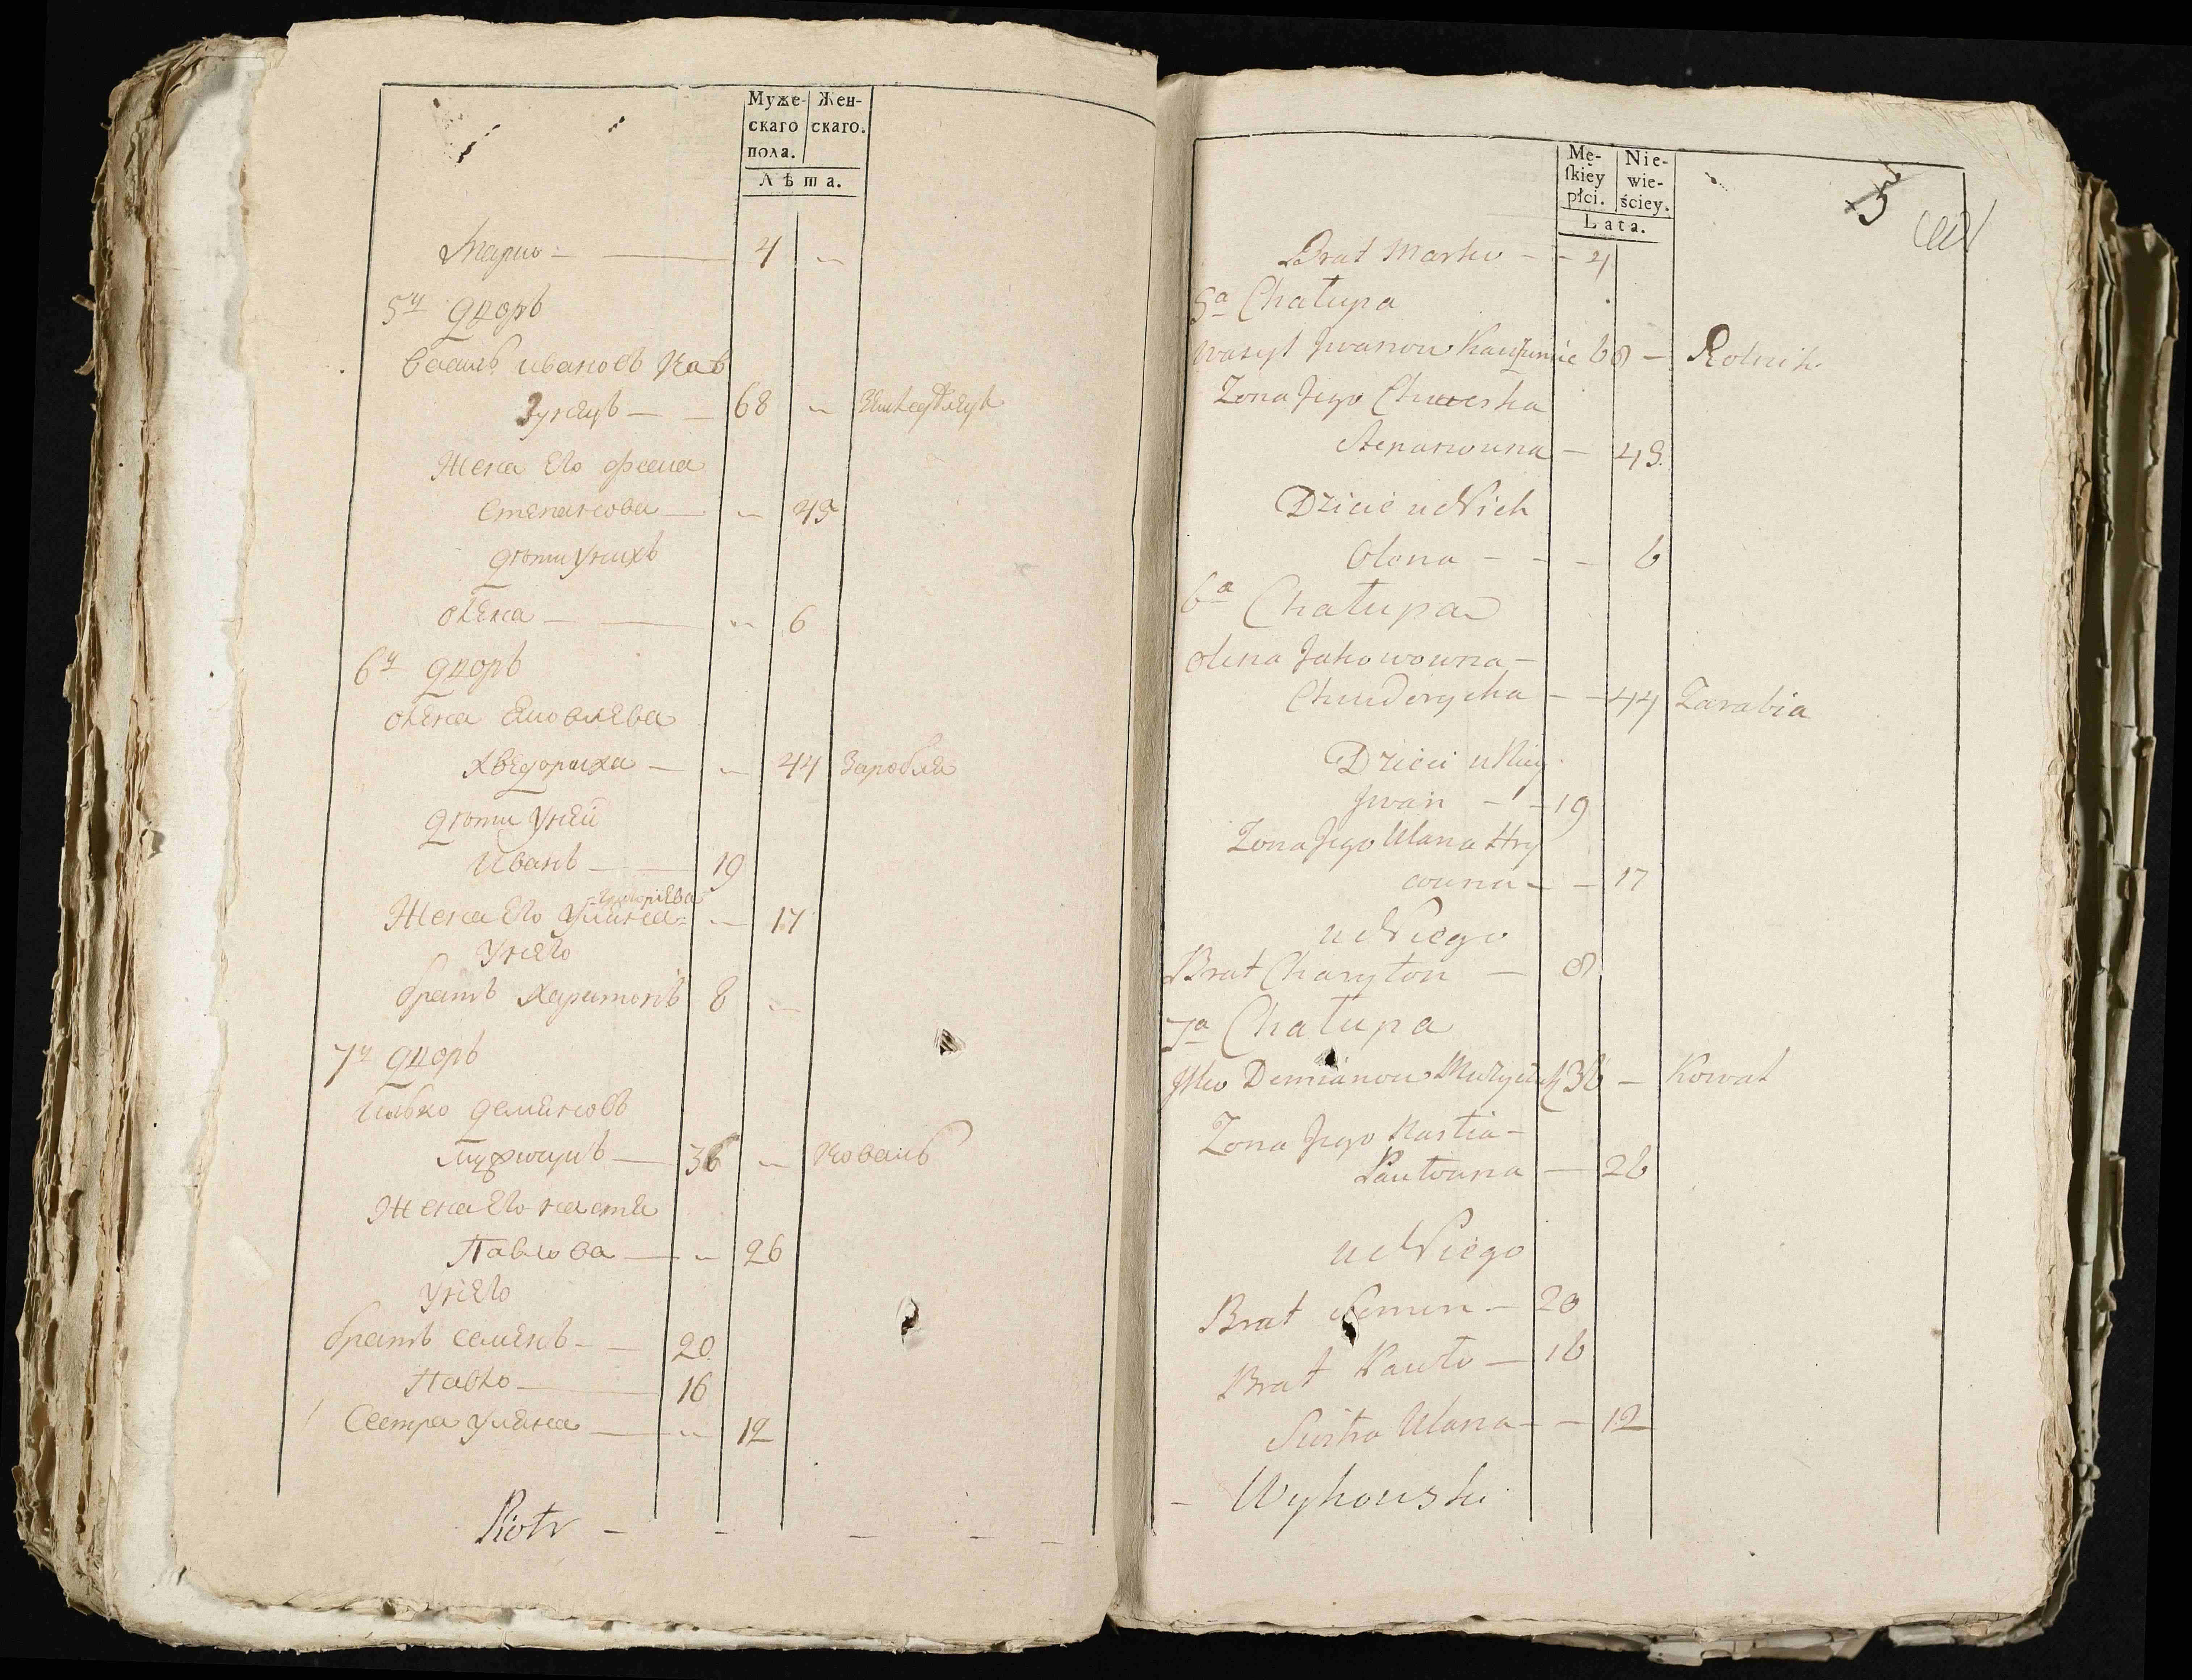 Муже-
скаго
пола.
Жен-
скаго.
Лѣта.
Марко — 4 —
5й дворъ
Василь Ивановъ Кав
зунецъ — 68 — Земледѣлецъ
Жена его Фесиа
Степанова — — 45
дѣти у нихъ
Олена — — 6
6й дворъ
Олена Яковлева
Хведориха — — 44 Заробля
дѣти у ней
Иванъ — 19
Григорiева
Жена его Уляна — — 17
у него
братъ Харитонъ 8 —
7й дворъ
Демяновъ
36 — Коваль
Жена его Настя
Павлова — — 26
у него
братъ Семенъ — 20
Павло — 16
Сестра Уляна — — 12
Piotr — — — — —
Mę-
ſkiey
płci.
Nie-
wie-
ściey.
Lata.
5
Brat Marko - - 4
5a Chałupa
Wasyl Jwanow 68 — Rolnik
Zona Jego Chweska
Stepanowna — 45
Dzieci u Nich
Olena - - - 6
6a Chałupa
Olena Jakowowna -
Chwederycha - - 44 Zarabia
Dzieci u Niey
Jwan - - 19
Zona Jego Ulana Hry
owna - - 17
u Niego
Brat Charyton — 8
7a Chałupa
Demianow 36 — Kowal
Zona Jego Nastia -
Pawłowna — 26
u Niego
Brat Semen — 20
Brat Pawło — 16
Siostra Ulana - - 12
- Wyhowski